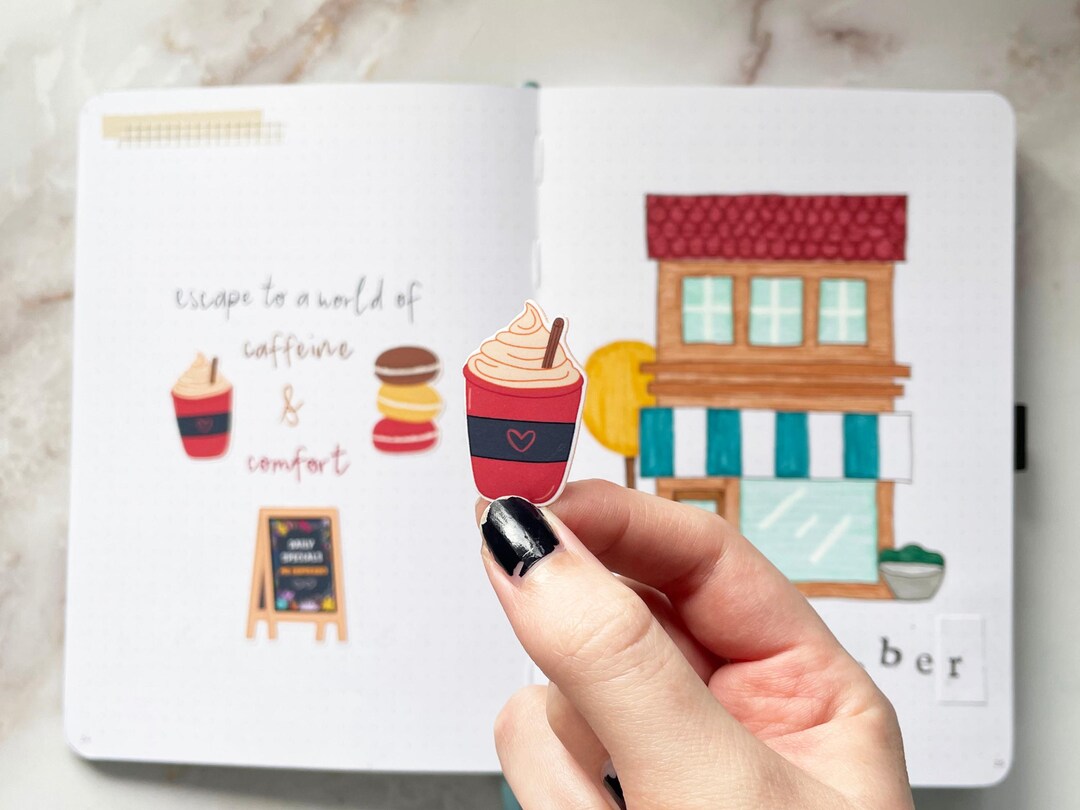 escape to a world of
caffeine
&
comfort
DAILY
SPECIALS
ber